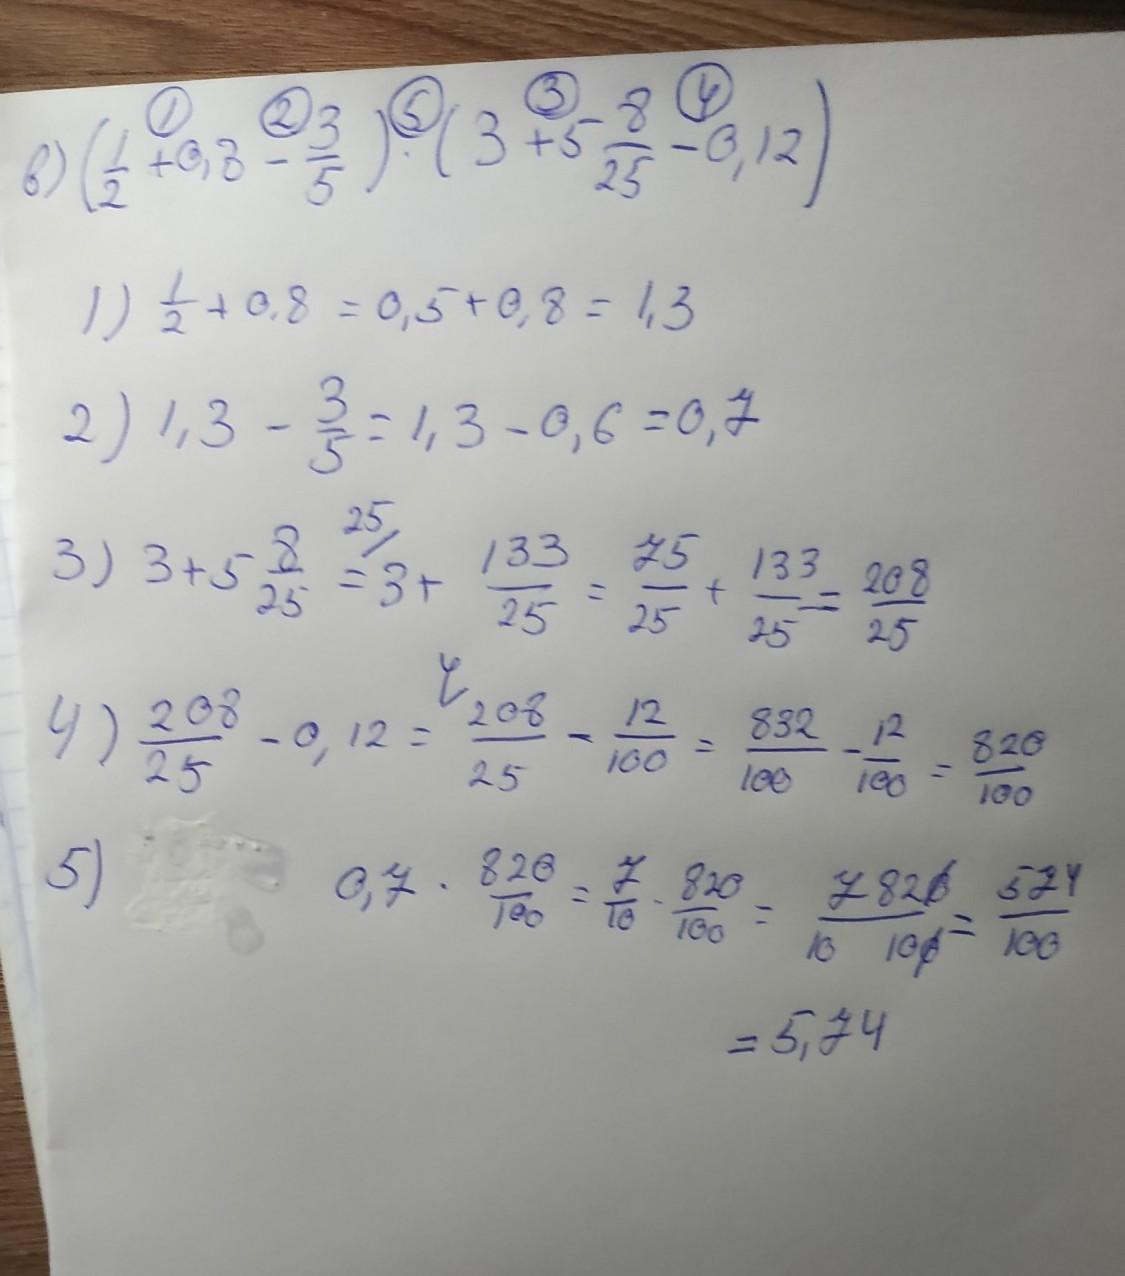 в) (1/2 + 0,8 - 3/5) · (3 + 5 8/25 - 0,12)
① ② ⑤ ③ ④
1) 1/2 + 0.8 = 0,5 + 0,8 = 1,3
2) 1,3 - 3/5 = 1,3 - 0,6 = 0,7
3) 3 + 5 8/25 = 25/ 3 + 133/25 = 75/25 + 133/25 = 208/25
4) 208/25 - 0,12 = 4/ 208/25 - 12/100 = 832/100 - 12/100 = 820/100
5) 0,7 · 820/100 = 7/10 · 820/100 = 7 820/10 100 = 574/100
= 5,74